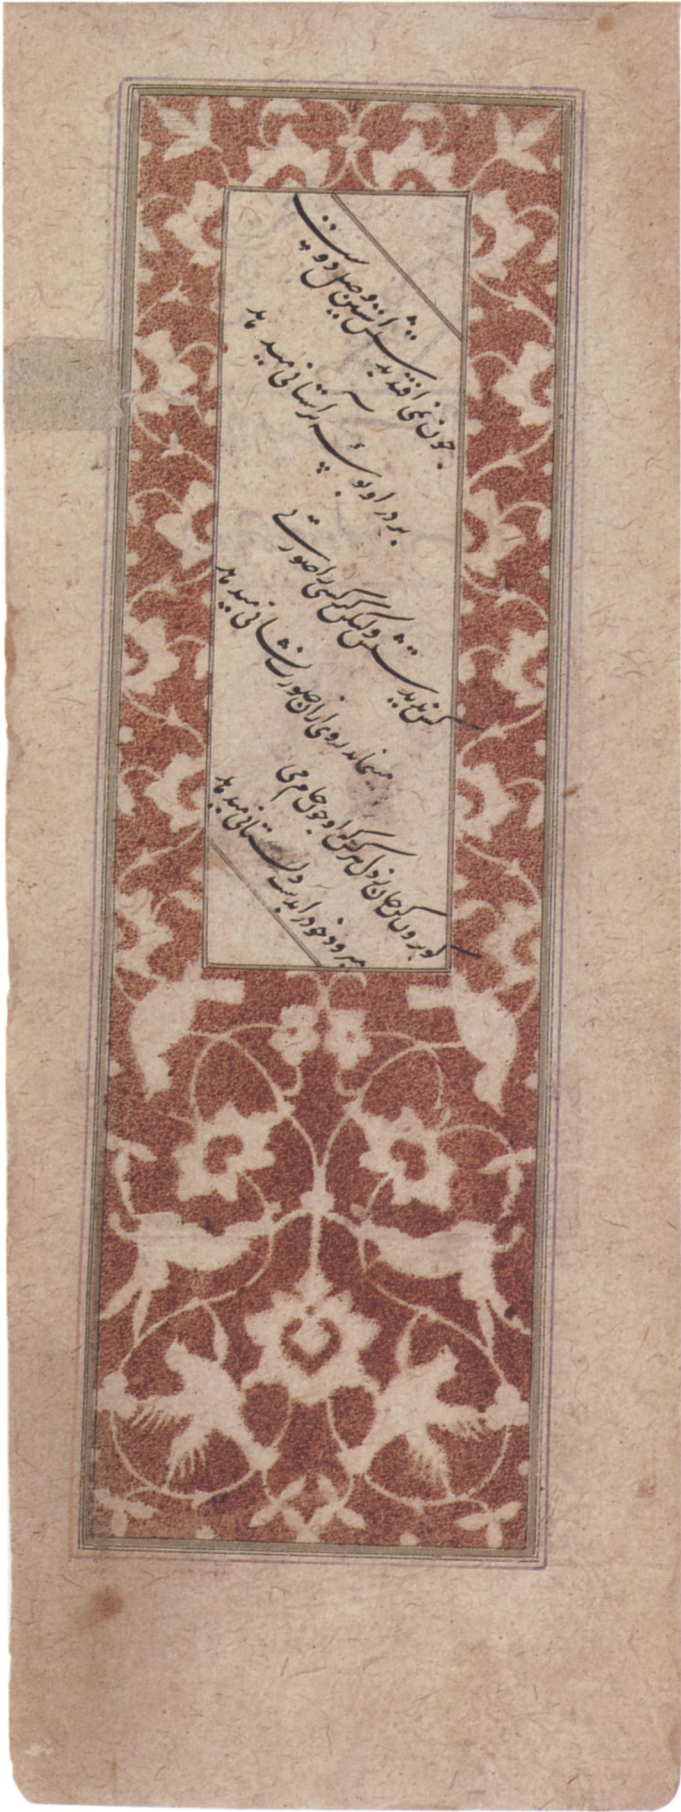 چون نمی افتد بدستش آستین وصل دوست
بر در او بوسه بر آستانی میدهد
کس ندیدستش ولیکن هر کسی را صورتی
مینماید روی از آن صورت نشانی میدهد
کو برون کن جان ز دل هر کس که او چون جام می
میرود خود را بدست دلستانی میدهد